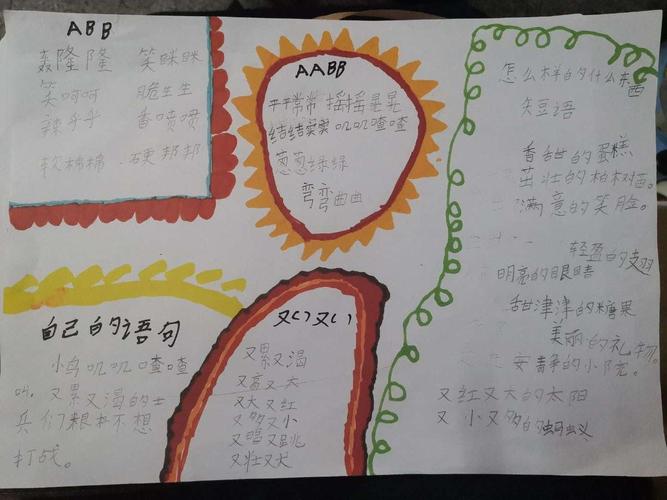 ABB
轰隆隆 笑咪咪
笑呵呵 脆生生
辣乎乎 香喷喷
软棉棉 硬邦邦
AABB
平平常常 摇摇晃晃
结结实实 叽叽喳喳
葱葱绿绿
弯弯曲曲
怎么样的什么东西
短语
香甜的蛋糕
茁壮的柏树苗。
满意的笑脸。
轻盈的翅
明亮的眼睛
甜津津的糖果
美丽的礼物
安静的小院。
又红又大的太阳
又小又多的蚂蚁
自己的语句
小鸟叽叽喳喳
叫。又累又渴的士
兵们根本不想
打战。
又()又()
又累又渴
又高又大
又大又红
又多又小
又唱又跳
又壮又犬